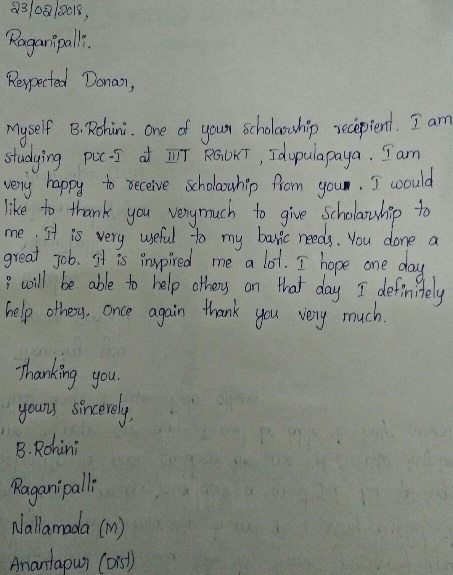 23/02/2018,
Raganipalli.
Respected Donar,
Myself B.Rohini. one of your scholarship recepient. I am
studying puc-I at IIIT RGUKT, Idupulapaya. I am
very happy to receive scholarship from you. I would
like to thank you verymuch to give scholarship to
me. It is very useful to my basic needs. You done a
great job. It is inspired me a lot. I hope one day
i will be able to help others on that day I definitely
help others. once again thank you very much.
Thanking you.
yours sincerely,
B.Rohini
Raganipalli
Nallamada (M)
Anantapur (Dist)